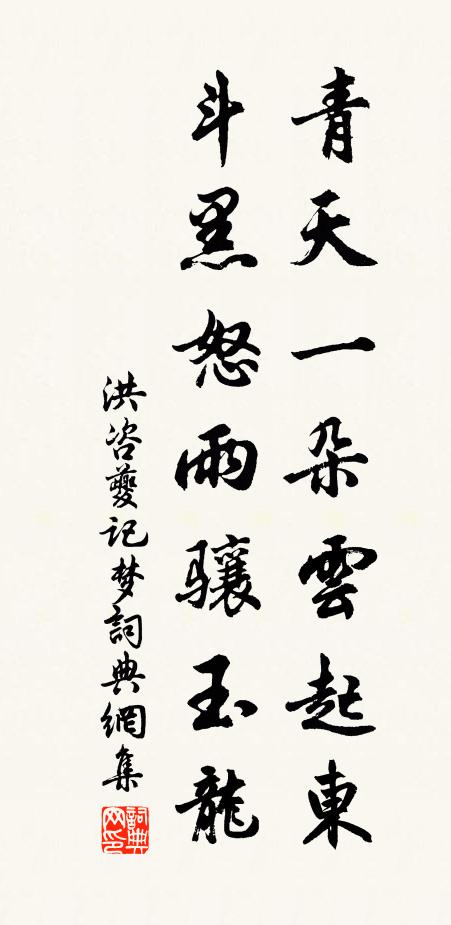 青天一朵雲起東
斗黑怒雨骧玉龍
洪咨夔记梦詞典網集
詞典网印